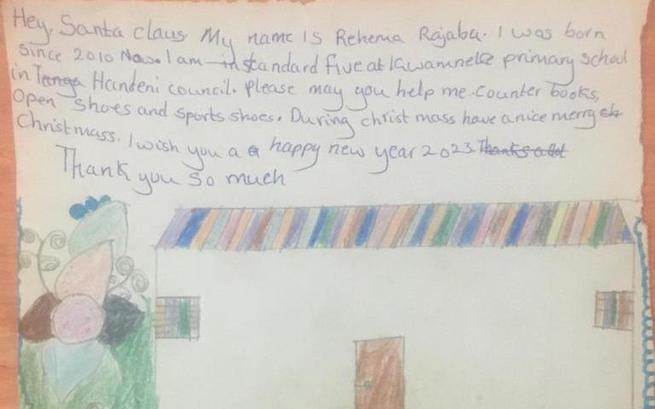 Hey, Santa claus My name Is Rehema Rajabu. I was born
since 2010 Now. I am in standard five at Kwamneke primary school
in Tanga Handeni council. Please may you help me counter books,
Open shoes and sports shoes. During christ mass have a nice merry ch
Christmass. I wish you a a happy new year 2023 Thanks a lot
Thank you so much